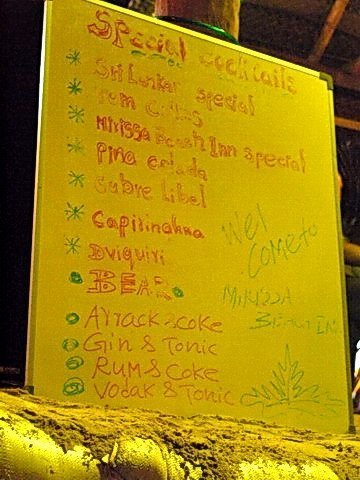 Special cocktails
Sri Lankar special
Tom Colins
Mirissa Beach Inn special
Pina colada
Subre Libel
Capirinahna
Dviquiri
BEAR
Arrack & coke
Gin & Tonic
Rum & Coke
Vodak & Tonic
Wel
Come to
Mirizza
Beach Inn